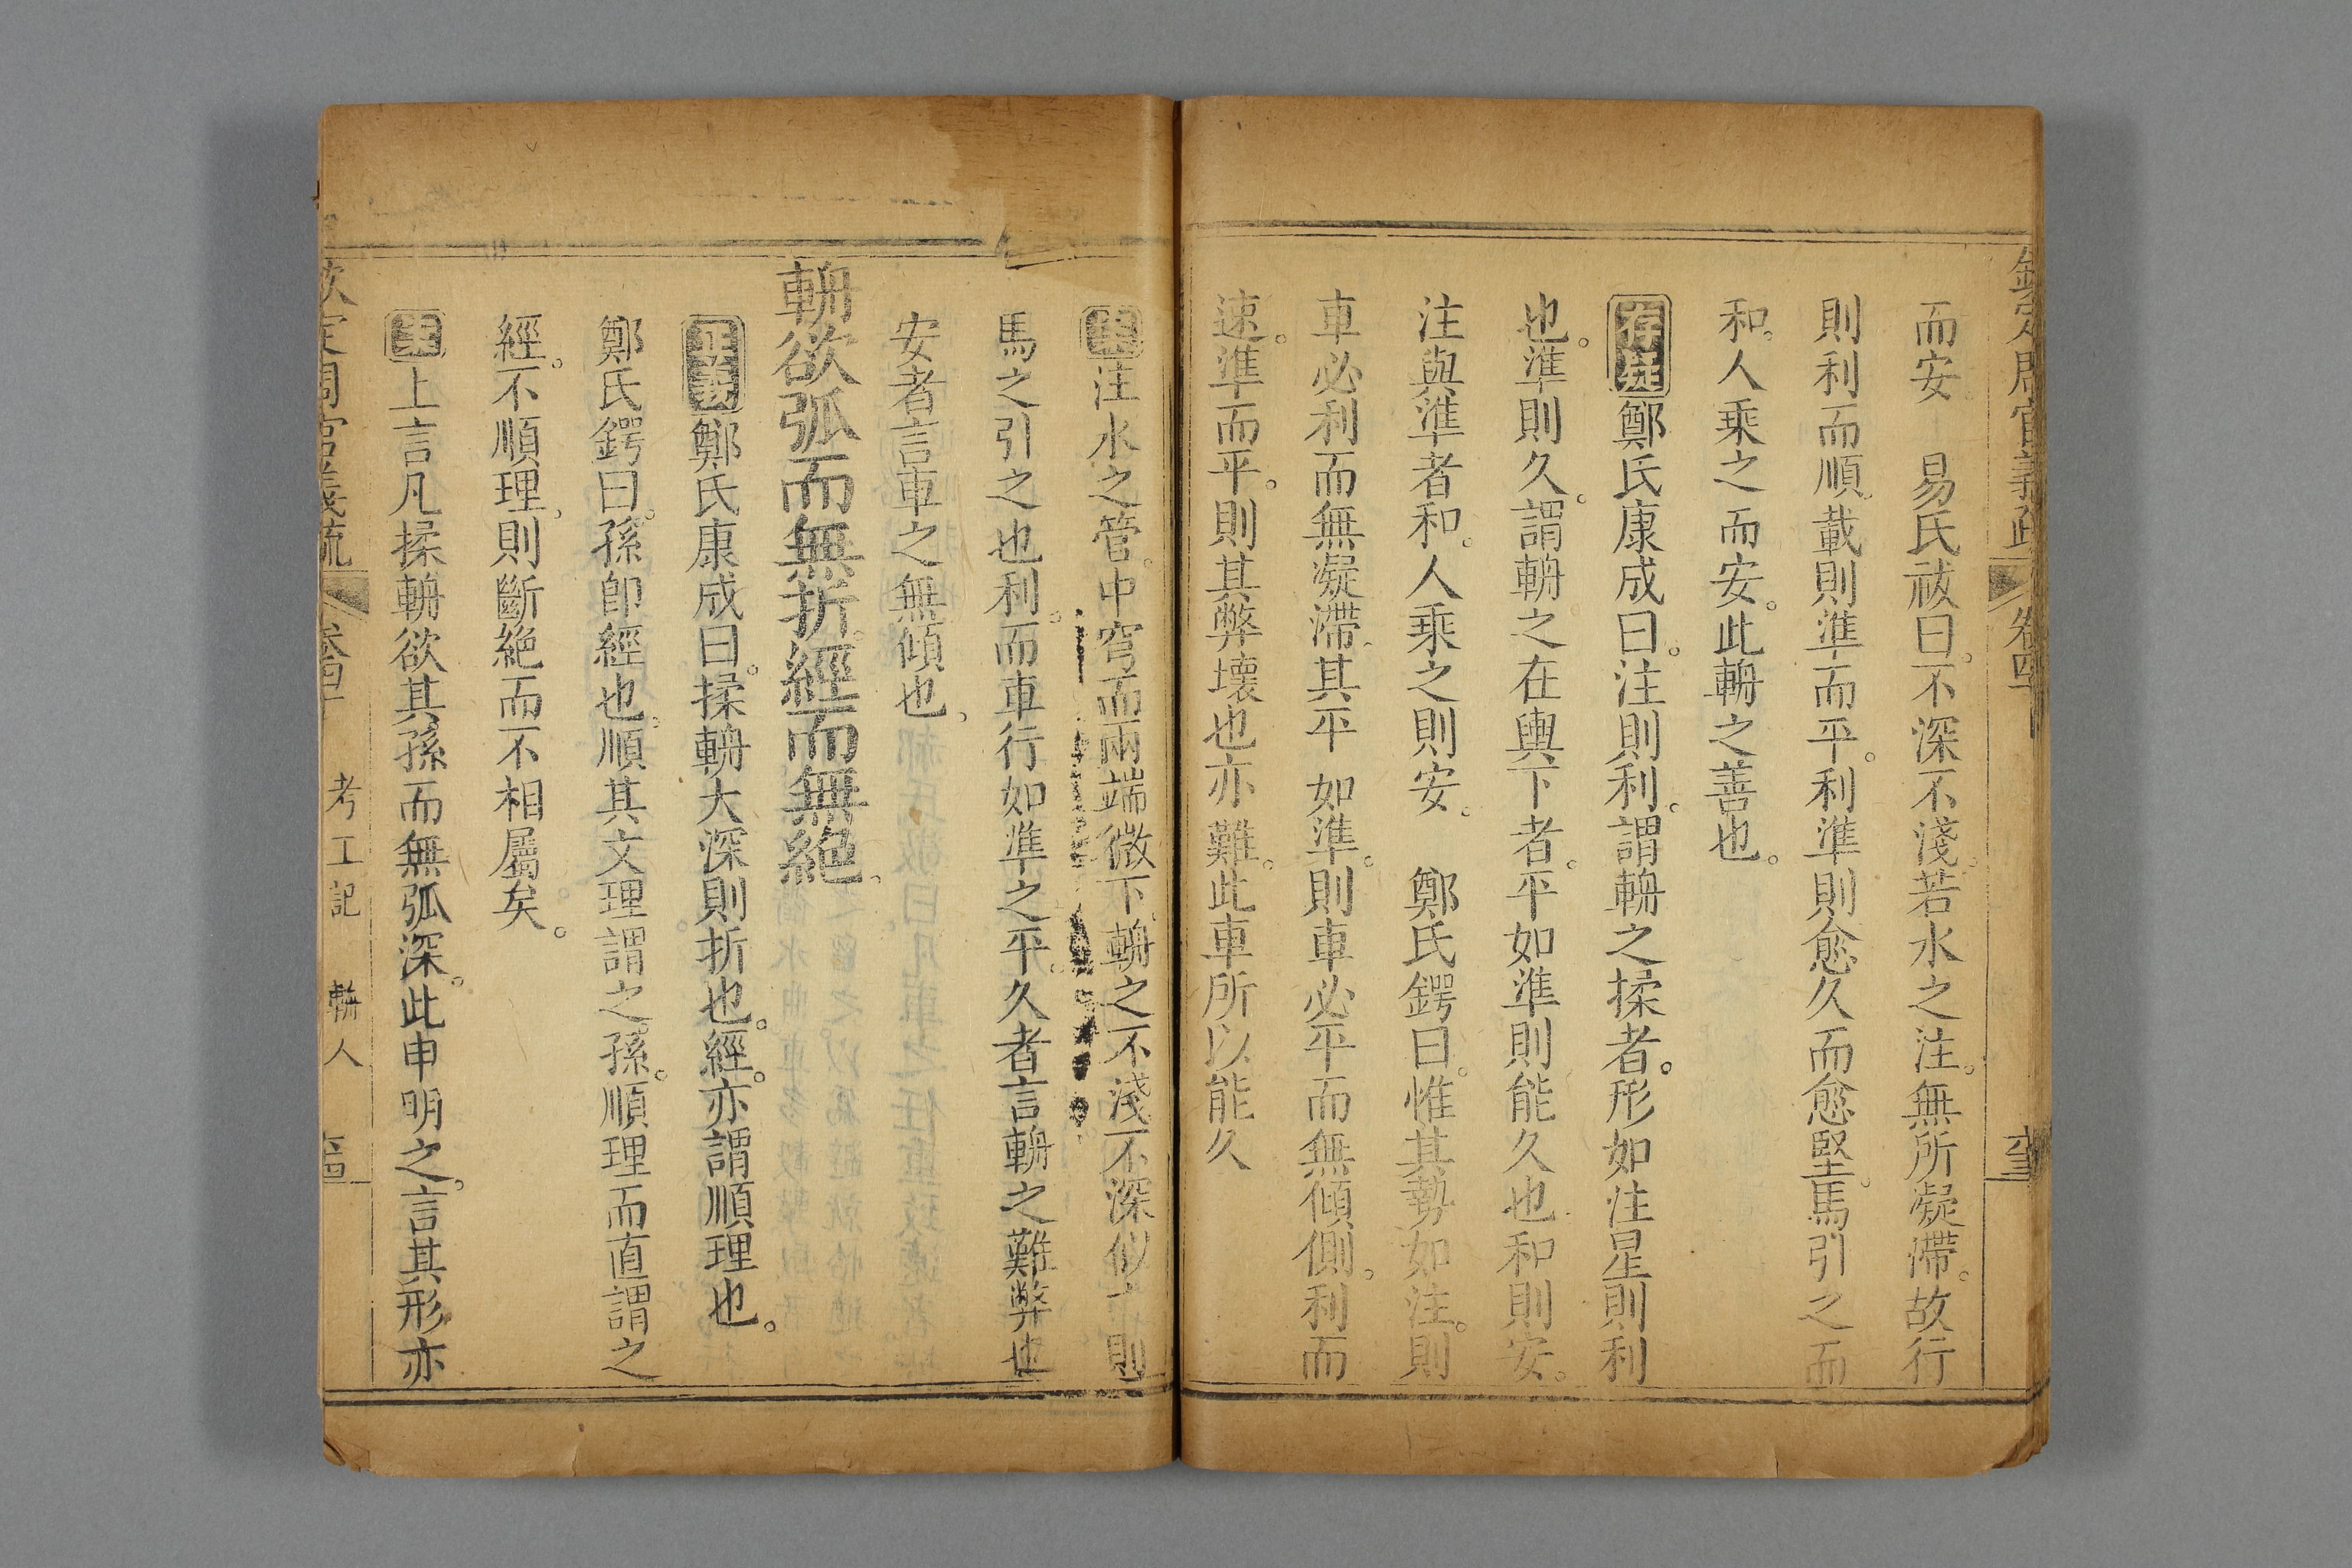 欽定周官義疏 卷四十
而安 易氏祓曰不深不淺若水之注無所凝滯故行
則利而順載則準而平利準則愈久而愈堅馬引之而
和人乘之而安此輈之善也
存疑鄭氏康成曰注則利謂輈之揉者形如注星則利
也準則久謂輈之在輿下者平如準則能久也和則安
注與準者和人乘之則安 鄭氏鍔曰惟其勢如注則
車必利而無凝滯其平如準則車必平而無傾側利而
速準而平則其弊壞也亦難此車所以能久
注水之管中穹而兩端微下輈之不淺不深似之則
馬之引之也利而車行如準之平久者言輈之難弊也
安者言車之無傾也
輈欲弧而無折經而無絕
正義鄭氏康成曰揉輈大深則折也經亦謂順理也
鄭氏鍔曰孫卽經也順其文理謂之孫順理而直謂之
經不順理則斷絕而不相屬矣
上言凡揉輈欲其孫而無弧深此申明之言其形亦
欽定周官義疏 卷四十 考工記 輈人